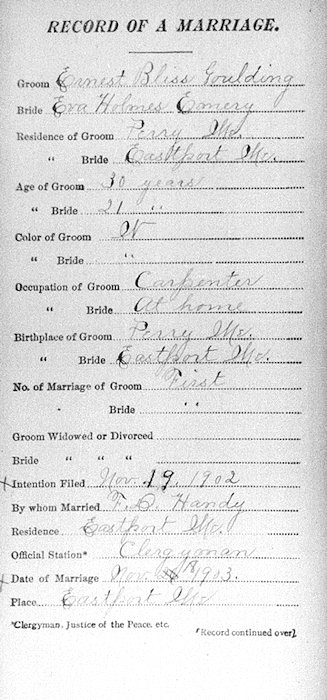 RECORD OF A MARRIAGE.
Groom Ernest Bliss Goulding
Bride Eva Holmes Emery
Residence of Groom Perry Me.
" Bride Eastport Me.
Age of Groom 30 years
" Bride 21 "
Color of Groom W
" Bride "
Occupation of Groom Carpenter
" Bride At home
Birthplace of Groom Perry Me.
" Bride Eastport Me.
No. of Marriage of Groom First
" Bride "
Groom Widowed or Divorced
Bride " " "
x Intention Filed Nov. 19, 1902
By whom Married F. Handy
Residence Eastport Me.
Official Station* Clergyman
x Date of Marriage Nov. 1903.
Place Eastport Me
*Clergyman, Justice of the Peace, etc.
[Record continued over]